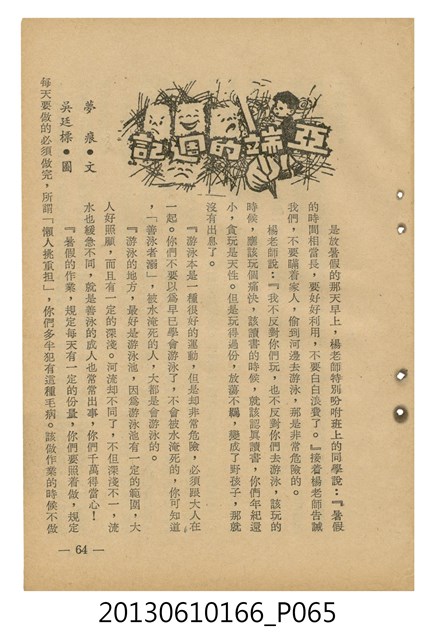 亞瑞的週記
夢痕•文
吳廷標•圖
是放暑假的那天早上，楊老師特別吩咐班上的同學說：『暑假
的時間相當長，要好好利用，不要白白浪費了。』接着楊老師告誡
我們，不要瞞着家人，偷到河邊去游泳，那是非常危險的。
楊老師說：『我不反對你們玩，也不反對你們去游泳，該玩的
時候，應該玩個痛快，該讀書的時候，就該認眞讀書，你們年紀還
小，貪玩是天性。但是玩得過份，放蕩不羈，變成了野孩子，那就
沒有出息了。
『游泳本是一種很好的運動，但是却非常危險，必須跟大人在
一起。你們不要以爲早已學會游泳了，不會被水淹死的，你可知道
，「善泳者溺」，被水淹死的人，大都是會游泳的。
『游泳的地方，最好是游泳池，因爲游泳池有一定的範圍，大
人好照顧，而且有一定的深淺。河流却不同了，不但深淺不一，流
水也緩急不同，就是善泳的成人也常常出事，你們千萬得當心！
『暑假的作業，規定每天有一定的份量，你們要照着做，規定
每天要做的必須做完，所謂「懶人挑重担」，你們多半犯有這種毛病。該做作業的時候不做
— 64 —
20130610166_P065